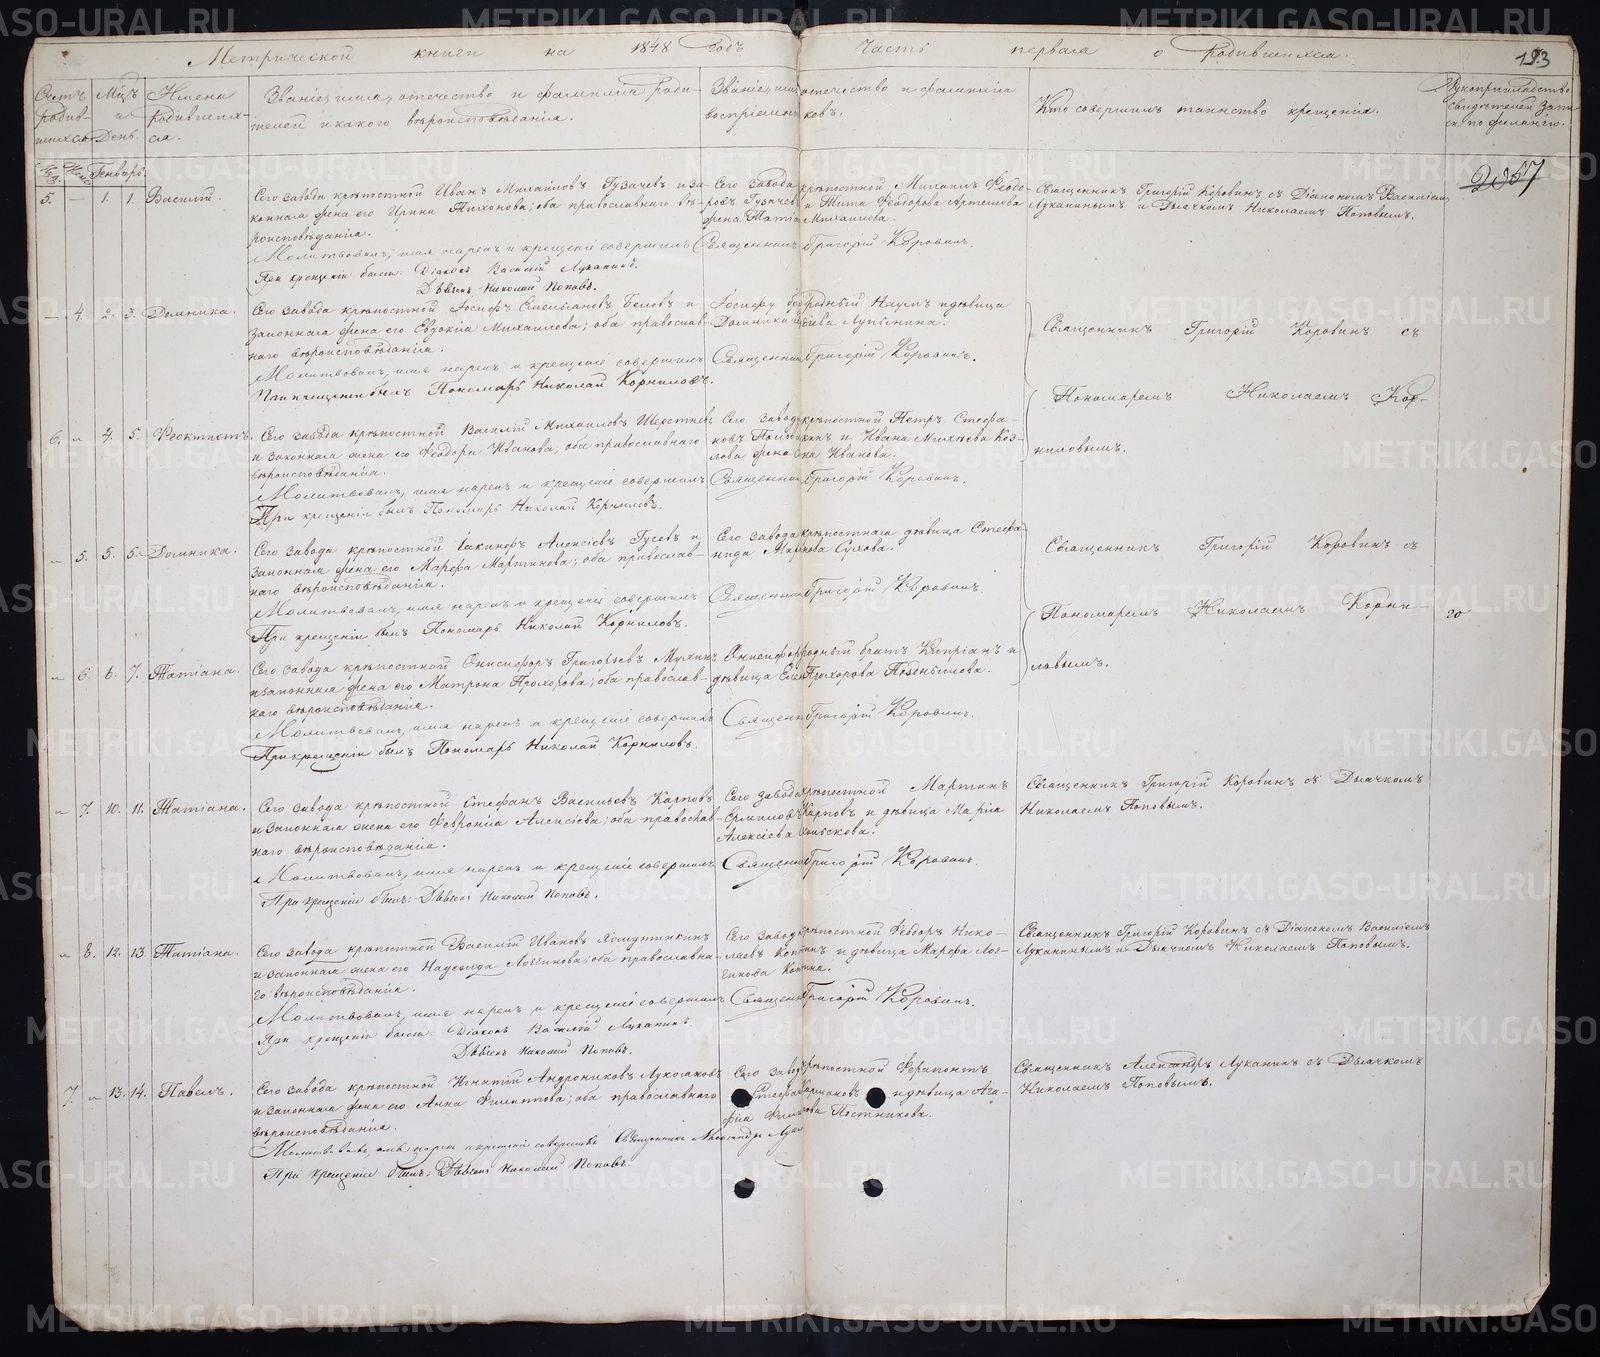 Метрической книги на 1848 годъ Часть первая о родившихся.
193
Счетъ родив- шихся
Мѣц. и День.
Имена родившихся.
Званіе, имя, отечество и фамилія роди-
телей и какого вѣроисповѣданія.
Званіе, имя, отечество и фамилія
воспріемниковъ.
Кто совершилъ таинство крещенія.
Рукоприкладство
свидѣтелей запи-
си по желанію.
Генварь.
2867
5. — 1. 1. Василій.
Сего завода крѣпостной Иванъ Михайловъ Гузачевъ и за-
конная жена его Ирина Тихонова; оба православнаго вѣ-
роисповѣданія.
Молитвовалъ, имя нарекъ и крещеніе совершилъ Священникъ Григорій Коровинъ.
При крещеніи были: Діаконъ Василій Луканинъ.
Дьячекъ Николай Поповъ.
Сего завода крѣпостной Михаилъ Ѳеодо-
ровъ Гузачев и Тита Ѳеодорова Артемова
жена Татіана Михаилова.
Священникъ Григорій Коровинъ съ Діакономъ Василіемъ
Луканинымъ и Дьячкомъ Николаемъ Поповымъ.
— 4. 2. 3. Домника.
Сего завода крѣпостной Іосифъ Емельяновъ Беловъ и
законная жена его Евдокія Михаилова; оба православ-
наго вѣроисповѣданія.
Молитвовалъ, имя нарекъ и крещеніе совершилъ Священникъ Григорій Коровинъ.
При крещеніи былъ Пономарь Николай Корниловъ.
Іосифу родный Наумъ и дѣвица
Домника
Священникъ Григорій Коровинъ съ
Пономаремъ Николаемъ Кор-
ниловымъ.
6. " 4. 5. Ѳеоктистъ.
Сего завода крѣпостной Василій Михаиловъ Шерстневъ
и законная жена его Ѳеодора Иванова; оба православнаго
вѣроисповѣданія.
Молитвовалъ, имя нарекъ и крещеніе совершилъ Священникъ Григорій Коровинъ.
При крещеніи былъ Пономарь Николай Корниловъ.
Сего завода крѣпостной Петръ Стефа-
новъ и Ивана Михѣева Коз-
лова жена Иванова.
" 5. 5. 5. Домника.
Сего завода крѣпостной Іакинѳъ Алексіевъ Гусевъ и
законная жена его Марѳа Мартинова; оба православ-
наго вѣроисповѣданія.
Молитвовалъ, имя нарекъ и крещеніе совершилъ Священникъ Григорій Коровинъ.
При крещеніи былъ Пономарь Николай Корниловъ.
Сего завода крѣпостная дѣвица Стефа-
нида Маркова Сухова.
Священникъ Григорій Коровинъ съ
Пономаремъ Николаемъ Корни-
ловымъ.
20
" 6. 6. 7. Татіана.
Сего завода крѣпостной Онисифоръ Григорьевъ Мухинъ
и законная жена его Матрона Прохорова; оба православ-
наго вѣроисповѣданія.
Молитвовалъ, имя нарекъ и крещеніе совершилъ Священникъ Григорій Коровинъ.
При крещеніи былъ Пономарь Николай Корниловъ.
Онисифору родный братъ Кипріанъ и
дѣвица Елена Прохорова
" 7. 10. 11. Татіана.
Сего завода крѣпостной Стефанъ Васильевъ Карповъ
и законная жена его Февронія Алексіева; оба православ-
наго вѣроисповѣданія.
Молитвовалъ, имя нарекъ и крещеніе совершилъ Священникъ Григорій Коровинъ.
При крещеніи былъ: Дьячекъ Николай Поповъ.
Сего завода крѣпостной Мартинъ
Ермиловъ Карповъ и дѣвица Марія
Алексіева
Священникъ Григорій Коровинъ съ Дьячкомъ
Николаемъ Поповымъ.
" 8. 12. 13. Татіана.
Сего завода крѣпостной Василій Ивановъ Хомутинкинъ
и законная жена его Надежда Логгинова; оба православна-
го вѣроисповѣданія.
Молитвовалъ, имя нарекъ и крещеніе совершилъ Священникъ Григорій Коровинъ.
При крещеніи были: Діаконъ Василій Луканинъ.
Дьячекъ Николай Поповъ.
Сего завода крѣпостной Ѳедоръ Нико-
лаевъ и дѣвица Марѳа Лог-
гинова
Священникъ Григорій Коровинъ съ Діакономъ Василіемъ
Луканинымъ и Дьячкомъ Николаемъ Поповымъ.
7. " 13. 14. Павелъ.
Сего завода крѣпостной Игнатій Андрониковъ Лукояновъ
и законная жена его Анна Филиппова; оба православнаго
вѣроисповѣданія.
Молитвовалъ, имя нарекъ и крещеніе совершилъ Священникъ Александръ
При крещеніи былъ: Дьячекъ Николай Поповъ.
Сего завода крѣпостной Ѳерапонтъ
и дѣвица Ага-
фія Постникова.
Священникъ Александръ Луканинъ съ Дьячкомъ
Николаемъ Поповымъ.
METRIKI.GASO-URAL.RU